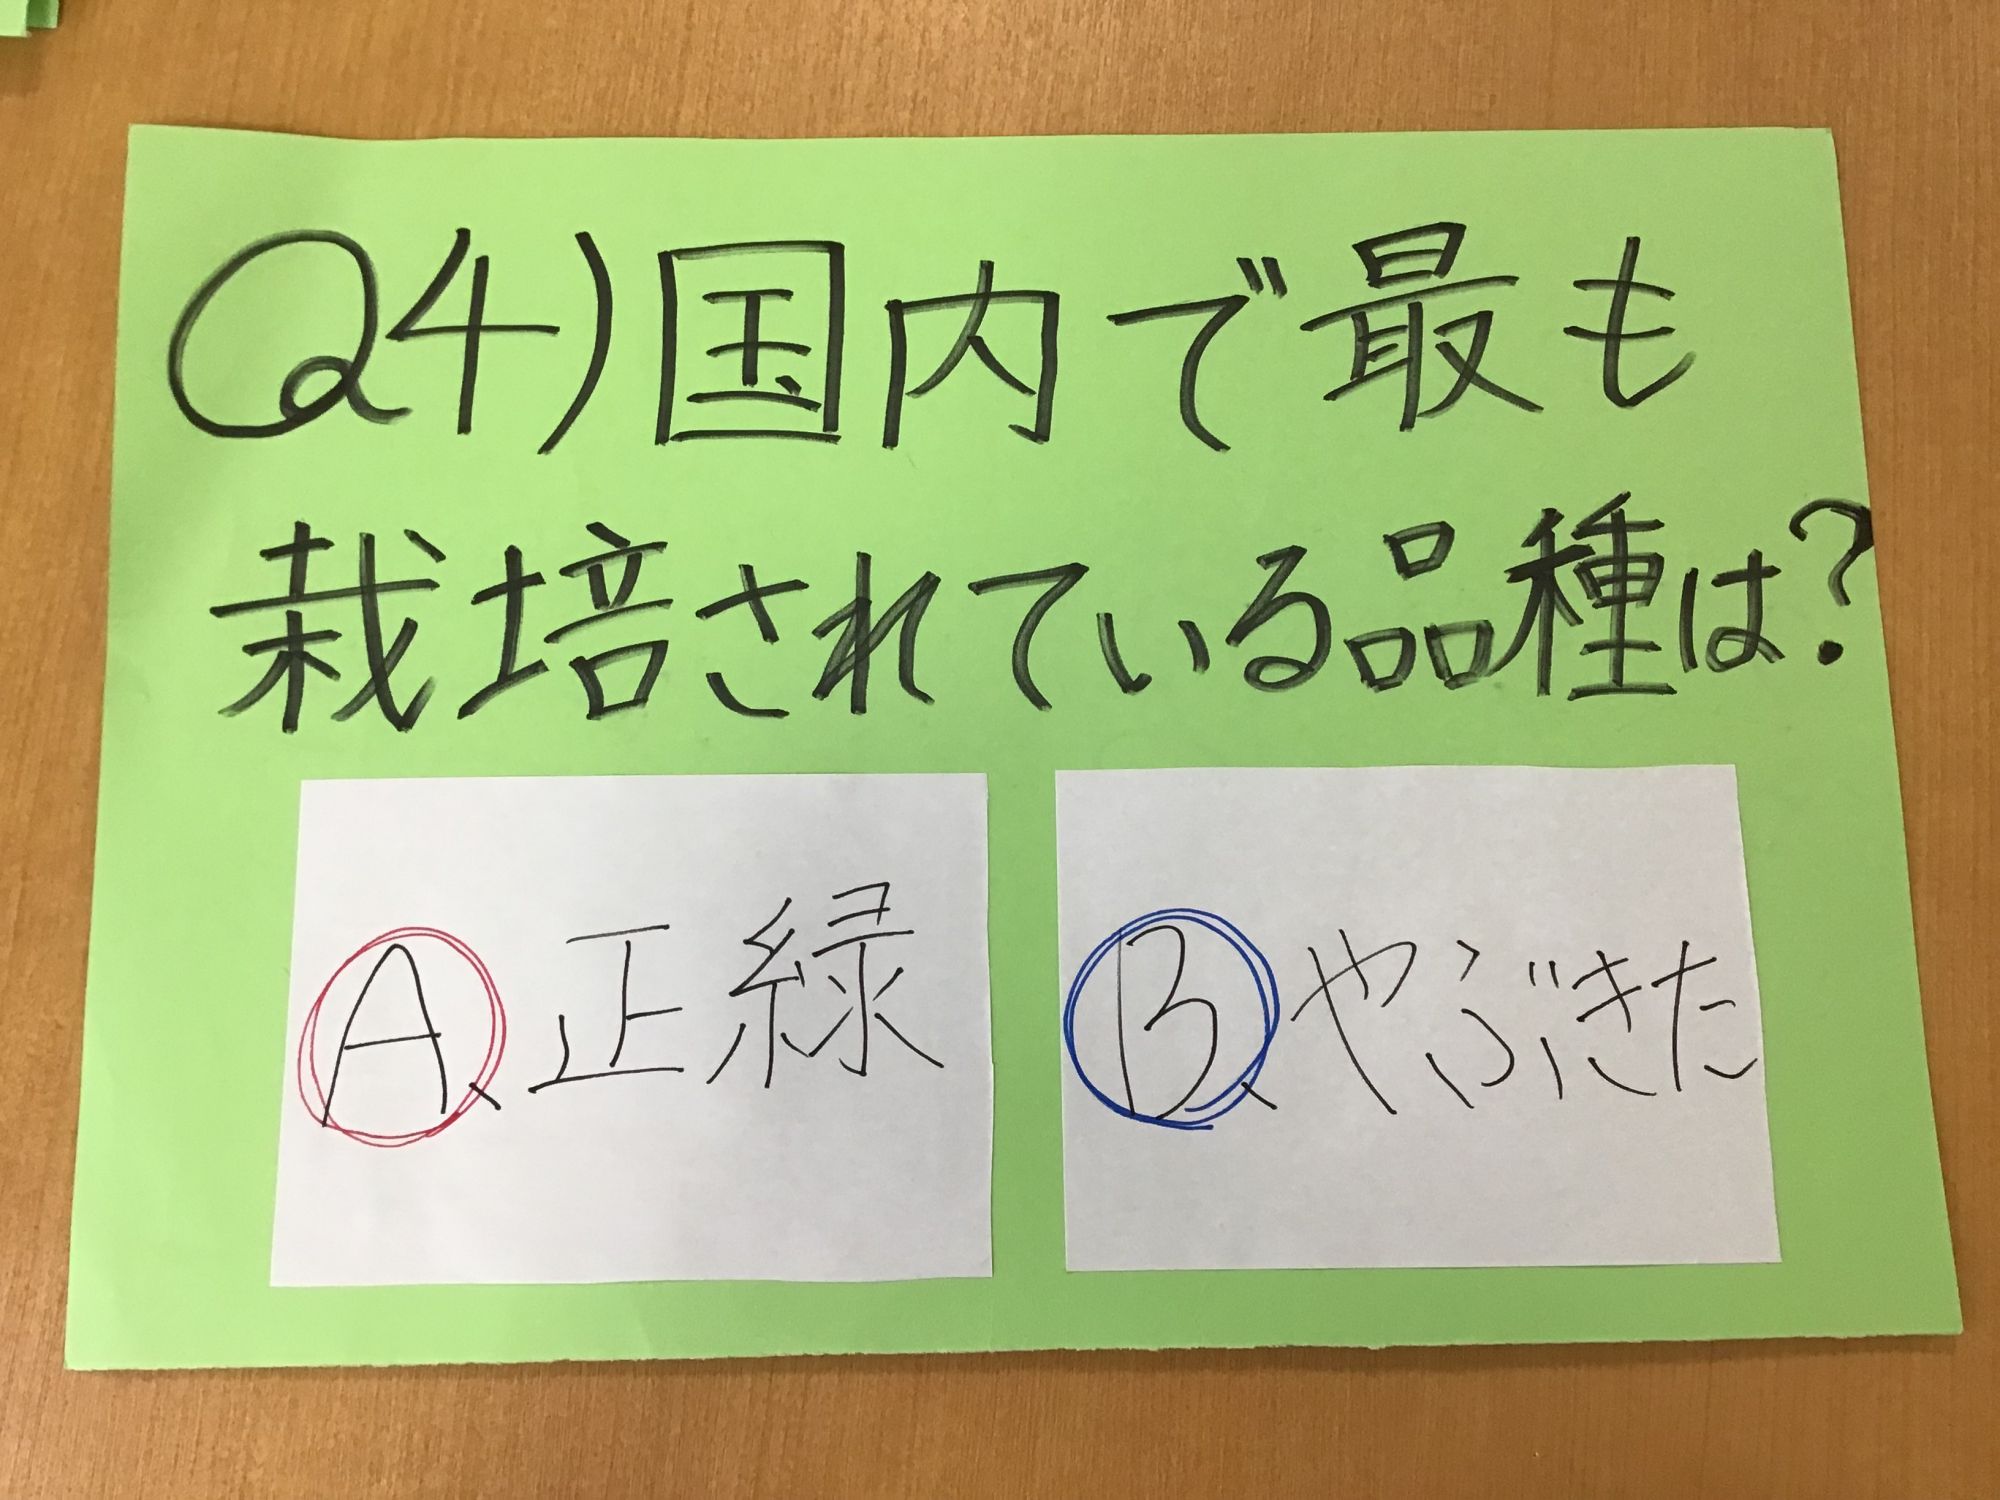 Q4)国内で最も
栽培されている品種は?
A、正緑
B、やぶきた